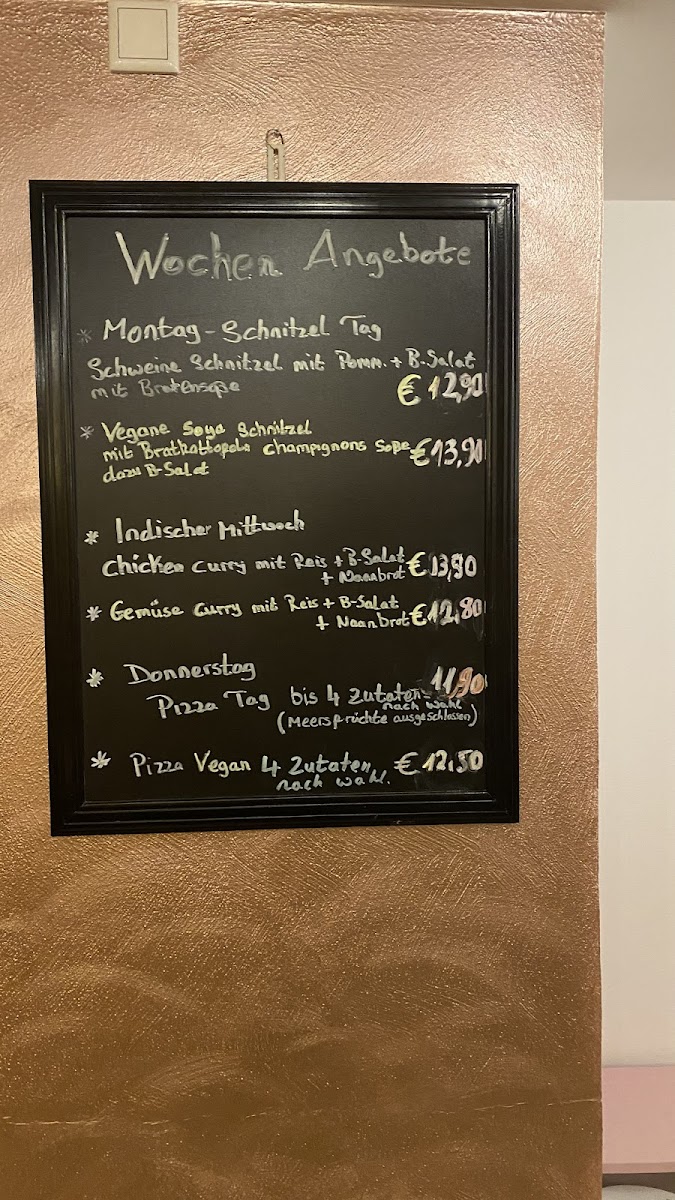 Wochen Angebote
* Montag - Schnitzel Tag
Schweine Schnitzel mit Pomm. + B.Salat
mit Bratensoße € 12,90
* Vegane Soya Schnitzel
mit Bratkattopeln Champignons Soße € 13,90
dazu B-Salat
* Indischer Mittwoch
Chicken Curry mit Reis + B-Salat € 13,90
+ Naanbrot
* Gemüse Curry mit Reis + B-Salat
+ Naanbrot € 12,80
* Donnerstag
Pizza Tag bis 4 Zutaten 11,90
nach wahl
(Meersprüchte ausgeschlassen)
* Pizza Vegan 4 Zutaten € 12,50
nach wahl.